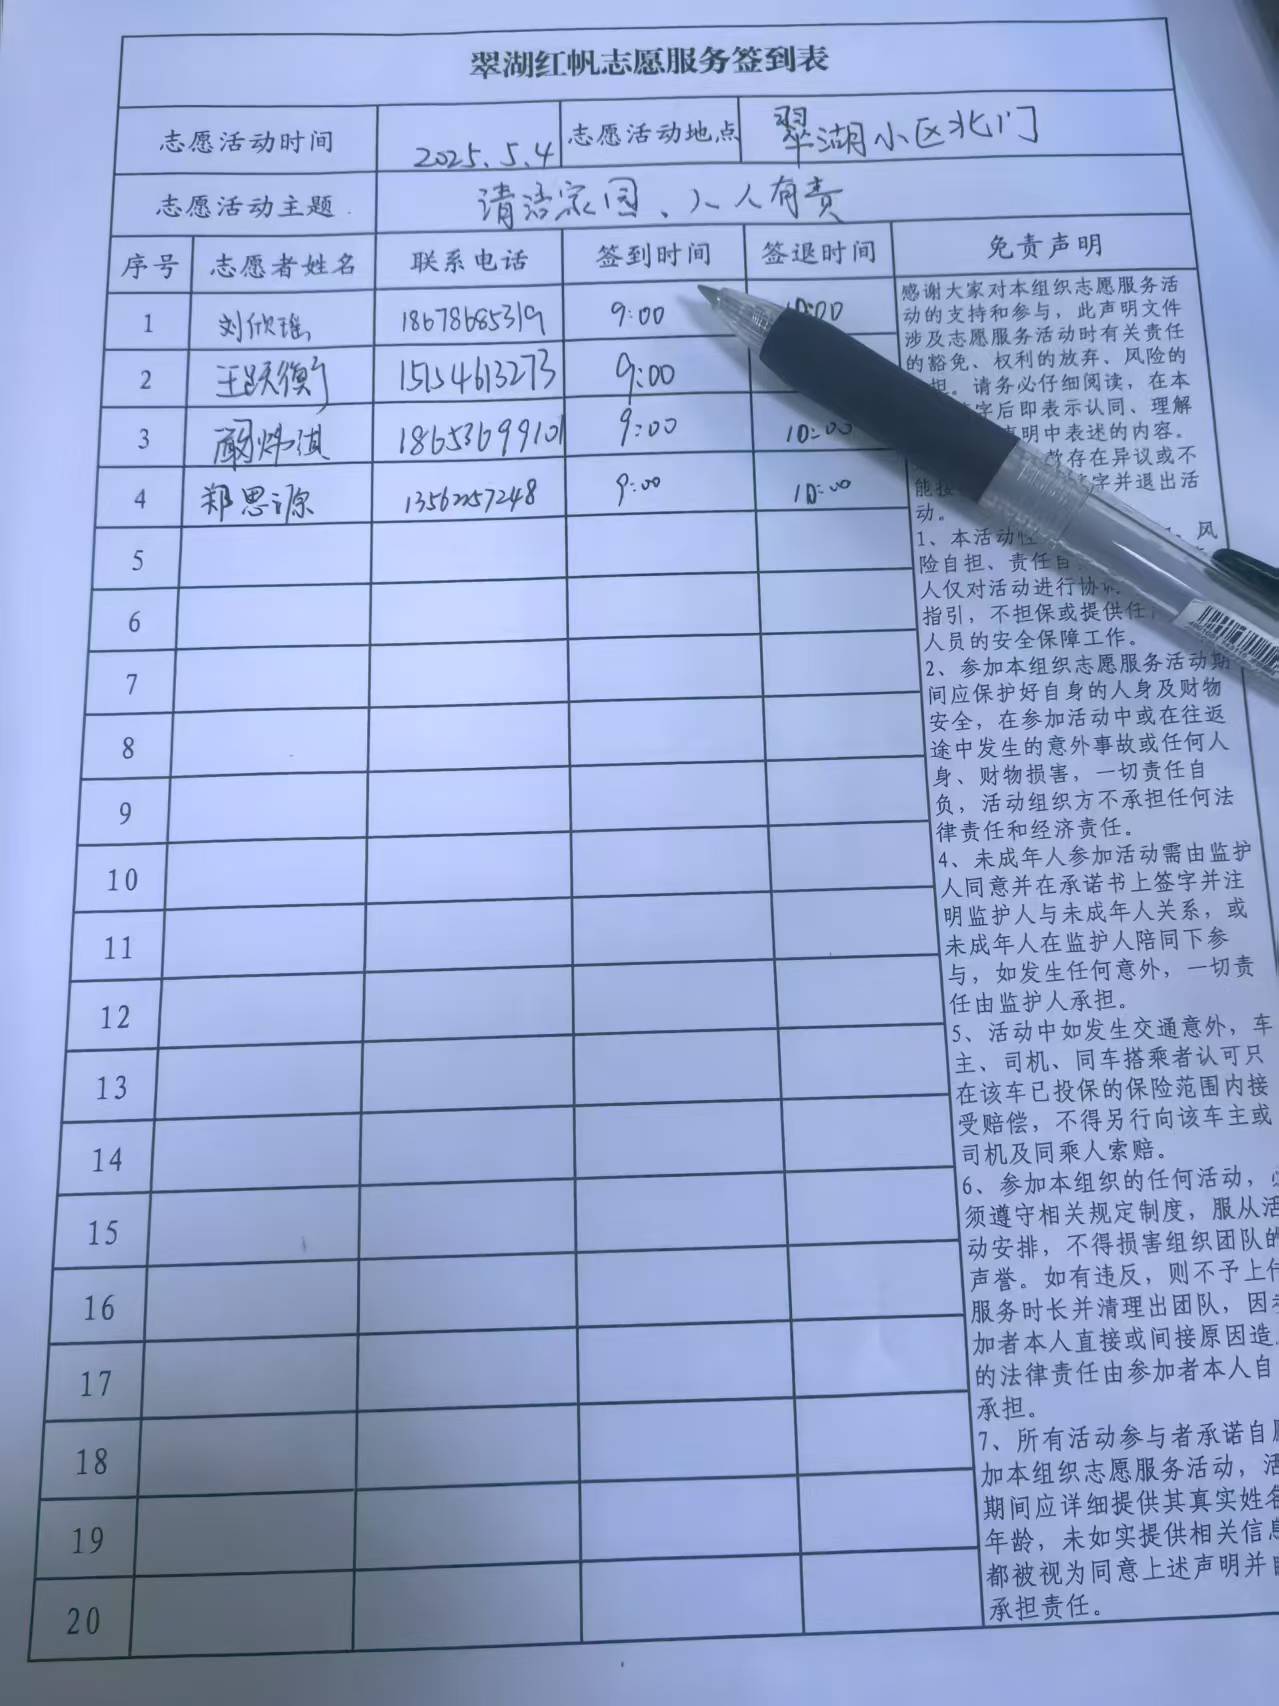 翠湖红帆志愿服务签到表
志愿活动时间 2025.5.4 志愿活动地点 翠湖小区北门
志愿活动主题 清洁家园、人人有责
序号 志愿者姓名 联系电话 签到时间 签退时间 免责声明
1 刘欣瑶 18678685319 9:00 10:00
2 王跃衡 15154613273 9:00
3 18653699101 9:00 10:00
4 郑思源 13562257248 9:00 10:00
5
6
7
8
9
10
11
12
13
14
15
16
17
18
19
20
感谢大家对本组织志愿服务活
动的支持和参与，此声明文件
涉及志愿服务活动时有关责任
的豁免、权利的放弃、风险的
担。请务必仔细阅读，在本
字后即表示认同、理解
明中表述的内容。
存在异议或不
能 字并退出活
动。
1、本活动 、风
险自担、责任自
人仅对活动进行协
指引，不担保或提供任
人员的安全保障工作。
2、参加本组织志愿服务活动期
间应保护好自身的人身及财物
安全，在参加活动中或在往返
途中发生的意外事故或任何人
身、财物损害，一切责任自
负，活动组织方不承担任何法
律责任和经济责任。
4、未成年人参加活动需由监护
人同意并在承诺书上签字并注
明监护人与未成年人关系，或
未成年人在监护人陪同下参
与，如发生任何意外，一切责
任由监护人承担。
5、活动中如发生交通意外，车
主、司机、同车搭乘者认可只
在该车已投保的保险范围内接
受赔偿，不得另行向该车主或
司机及同乘人索赔。
6、参加本组织的任何活动，必
须遵守相关规定制度，服从活
动安排，不得损害组织团队的
声誉。如有违反，则不予上传
服务时长并清理出团队，因参
加者本人直接或间接原因造
的法律责任由参加者本人自
承担。
7、所有活动参与者承诺自愿
加本组织志愿服务活动，活
期间应详细提供其真实姓名
年龄，未如实提供相关信息
都被视为同意上述声明并自
承担责任。